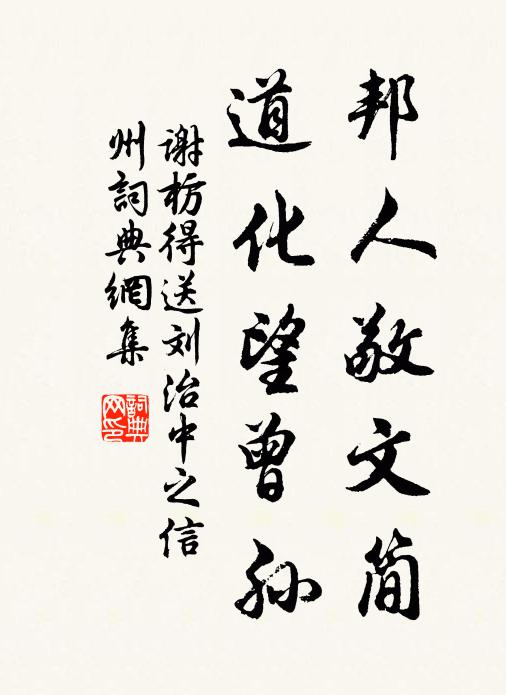 邦人敬文简
道化望曾孙
谢枋得送刘治中之信
州詞典網集
詞典
网印